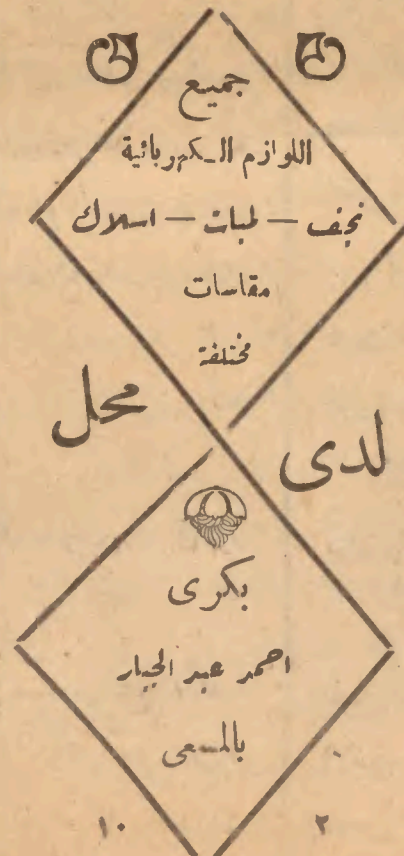 جميع
اللوازم الكهربائية
نجف – لمبات – اسلاك
مقاسات
مختلفة
لدى محل
بكرى
احمد عبد الجبار
بالمسعى
٢ ١٠